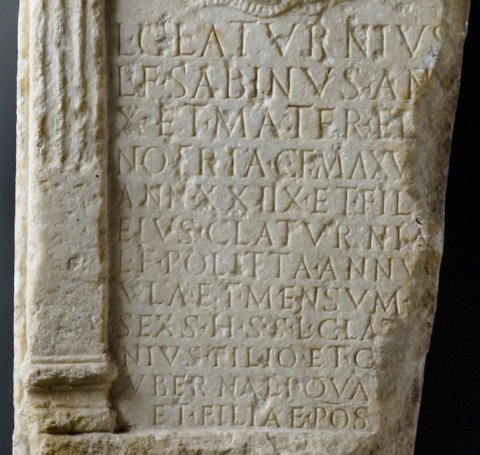 L·CLATVRNIVS
L·F·SABINVS·AN
X·ET·MATER·EI
NOFRIA·C·F·MAXV
ANN·XXIIX·ET·FIL
EIVS·CLATVRNIA
L·F·POLITTA·ANNV
VLA·ET·MENSVM·
SEX·S·H·S·S·L·CLAT
NIVS·FILIO·ET·C
VBERNALI·QVA
ET·FILIAE·POS